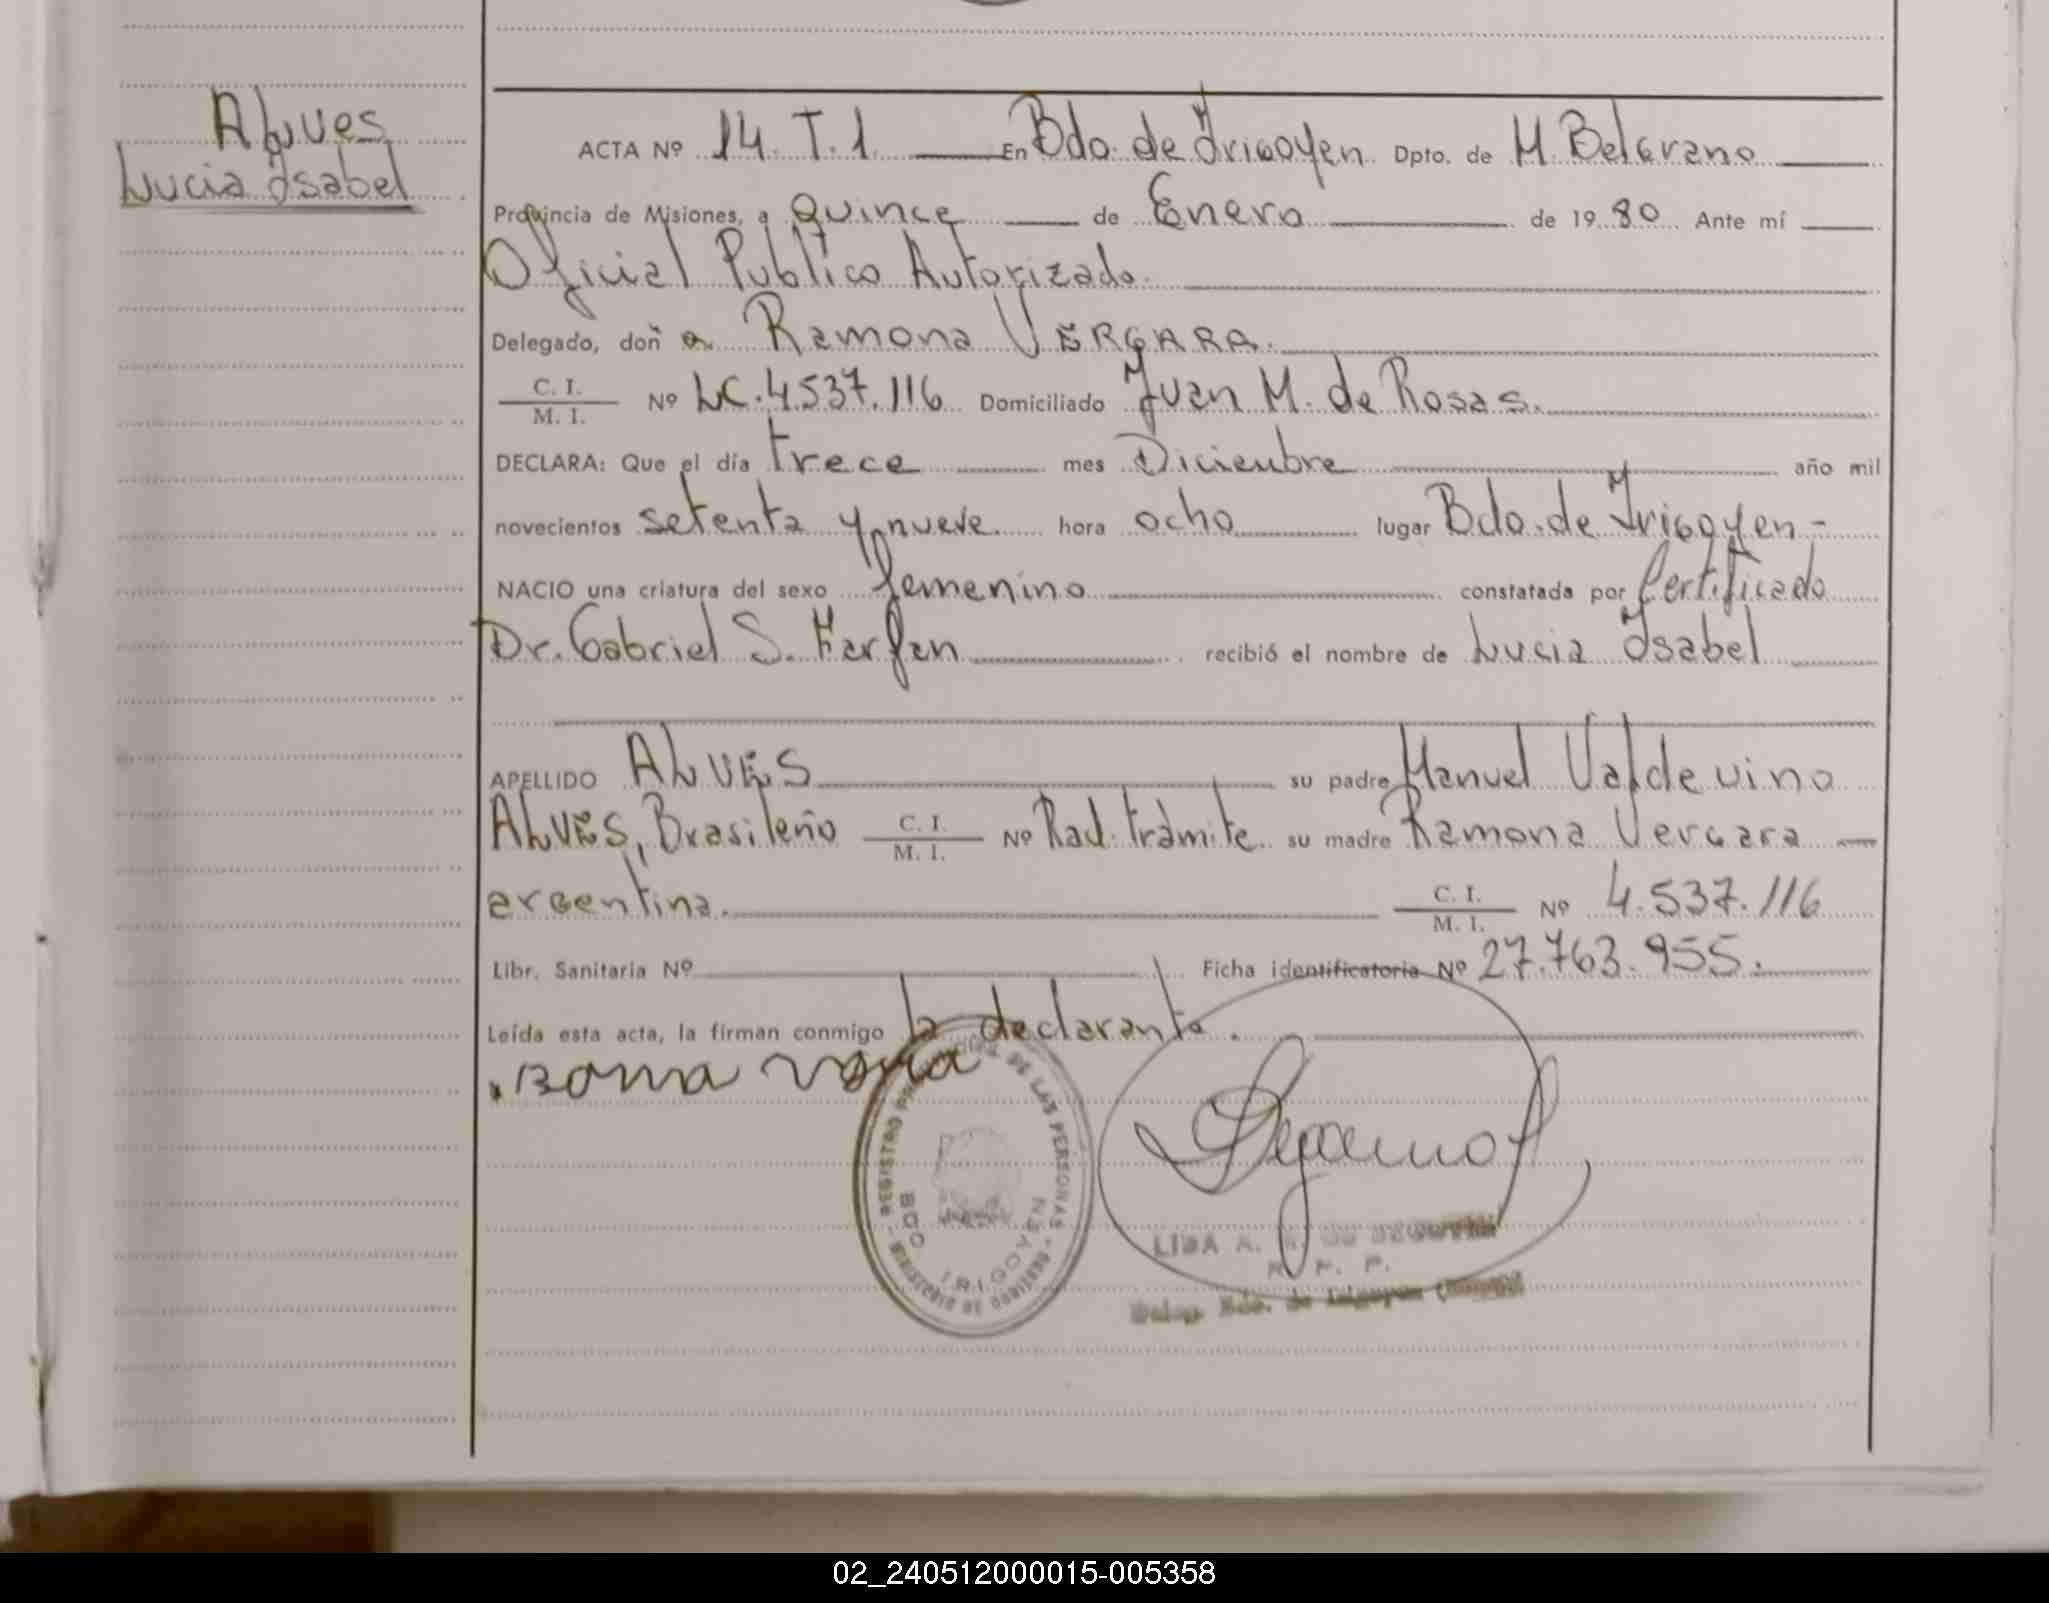 ALVES
Lucia Isabel
ACTA Nº 14. T. 1. En Bdo. de Irigoyen. Dpto. de M. Belgrano
Provincia de Misiones, a Quince de Enero de 19 80 Ante mí
Oficial Público Autorizado.
Delegado, doña Ramona VERGARA.
C. I.
M. I.
Nº LC. 4.537.116 Domiciliado Juan M. de Rosas.
DECLARA: Que el día trece mes Diciembre año mil
novecientos setenta y nueve hora ocho lugar Bdo. de Irigoyen -
NACIO una criatura del sexo femenino constatada por Certificado
Dr. Gabriel S. Farfan recibió el nombre de Lucia Isabel
APELLIDO ALVES su padre Manuel Valdevino
ALVES, Brasileño C. I. M. I. Nº Rad. trámite su madre Ramona Vergara
argentina. C. I. M. I. Nº 4.537.116
Libr. Sanitaria Nº Ficha identificatoria Nº 27.763.955.
Leída esta acta, la firman conmigo la declarante.
REGISTRO DE LAS PERSONAS
BDO. IRIGOYEN
LIDA
Bdo. de Irigoyen
02_240512000015-005358